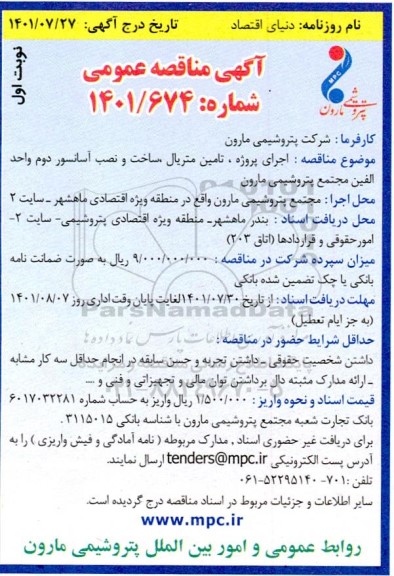 نام روزنامه: دنیای اقتصاد تاریخ درج آگهی: ۱۴۰۱/۰۷/۲۷
نوبت اول
MPC
پتروشیمی مارون
آگهی مناقصه عمومی
شماره: ۱۴۰۱/۶۷۴
کارفرما : شرکت پتروشیمی مارون
موضوع مناقصه : اجرای پروژه ، تامین متریال ،ساخت و نصب آسانسور دوم واحد
الفین مجتمع پتروشیمی مارون
محل اجرا : مجتمع پتروشیمی مارون واقع در منطقه ویژه اقتصادی ماهشهر ـ سایت ۲
محل دریافت اسناد : بندر ماهشهرـ منطقه ویژه اقتصادی پتروشیمی- سایت ۲-
امورحقوقی و قراردادها (اتاق ۲۰۳)
میزان سپرده شرکت در مناقصه : ۹/۰۰۰/۰۰۰/۰۰۰ ریال به صورت ضمانت نامه
بانکی یا چک تضمین شده بانکی
مهلت دریافت اسناد: از تاریخ ۱۴۰۱/۰۷/۳۰لغایت پایان وقت اداری روز ۱۴۰۱/۰۸/۰۷
(به جز ایام تعطیل)
ParsNamadData
حداقل شرایط حضور در مناقصه :
داشتن شخصیت حقوقی ـ داشتن تجربه و حسن سابقه در انجام حداقل سه کار مشابه
ـ ارائه مدارک مثبته دال برداشتن توان مالی و تجهیزاتی و فنی و ....
قیمت اسناد و نحوه واریز : ۱/۵۰۰/۰۰۰ ریال واریز به حساب شماره ۶۰۱۷۰۳۲۲۸۱
بانک تجارت شعبه مجتمع پتروشیمی مارون با شناسه بانکی ۳۱۱۵۰۱۵ .
برای دریافت غیر حضوری اسناد , مدارک مربوطه ( نامه آمادگی و فیش واریزی ) را به
آدرس پست الکترونیکی tenders@mpc.ir ارسال نمایند.
تلفن :۷۰۱- ۰۶۱-۵۲۲۹۵۱۴۰
سایر اطلاعات و جزئیات مربوط در اسناد مناقصه درج گردیده است.
www.mpc.ir
روابط عمومی و امور بین الملل پتروشیمی مارون